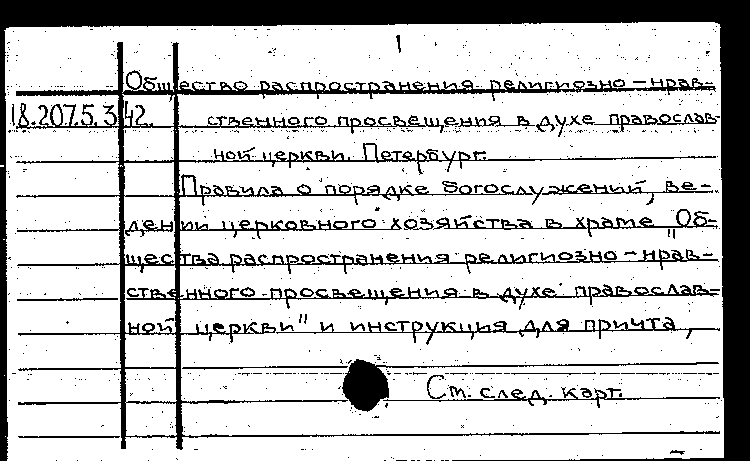 1
Общество распространения религиозно-нрав-
18.207.5.342. ственного просвещения в духе православ-
ной церкви. Петербург.
Правила о порядке богослужений, ве-
дении церковного хозяйства в храме "Об-
щества распространения религиозно-нрав-
ственного просвещения в духе православ-
ной церкви" и инструкция для причта,
См. след. карт.